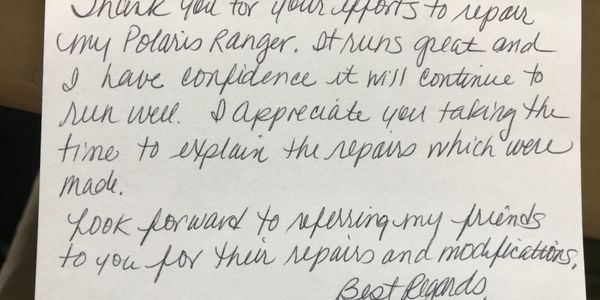 Thank you for your efforts to repair
my Polaris Ranger. It runs great and
I have confidence it will continue to
run well. I appreciate you taking the
time to explain the repairs which were
made.
Look forward to referring my friends
to you for their repairs and modifications.
Best Regards